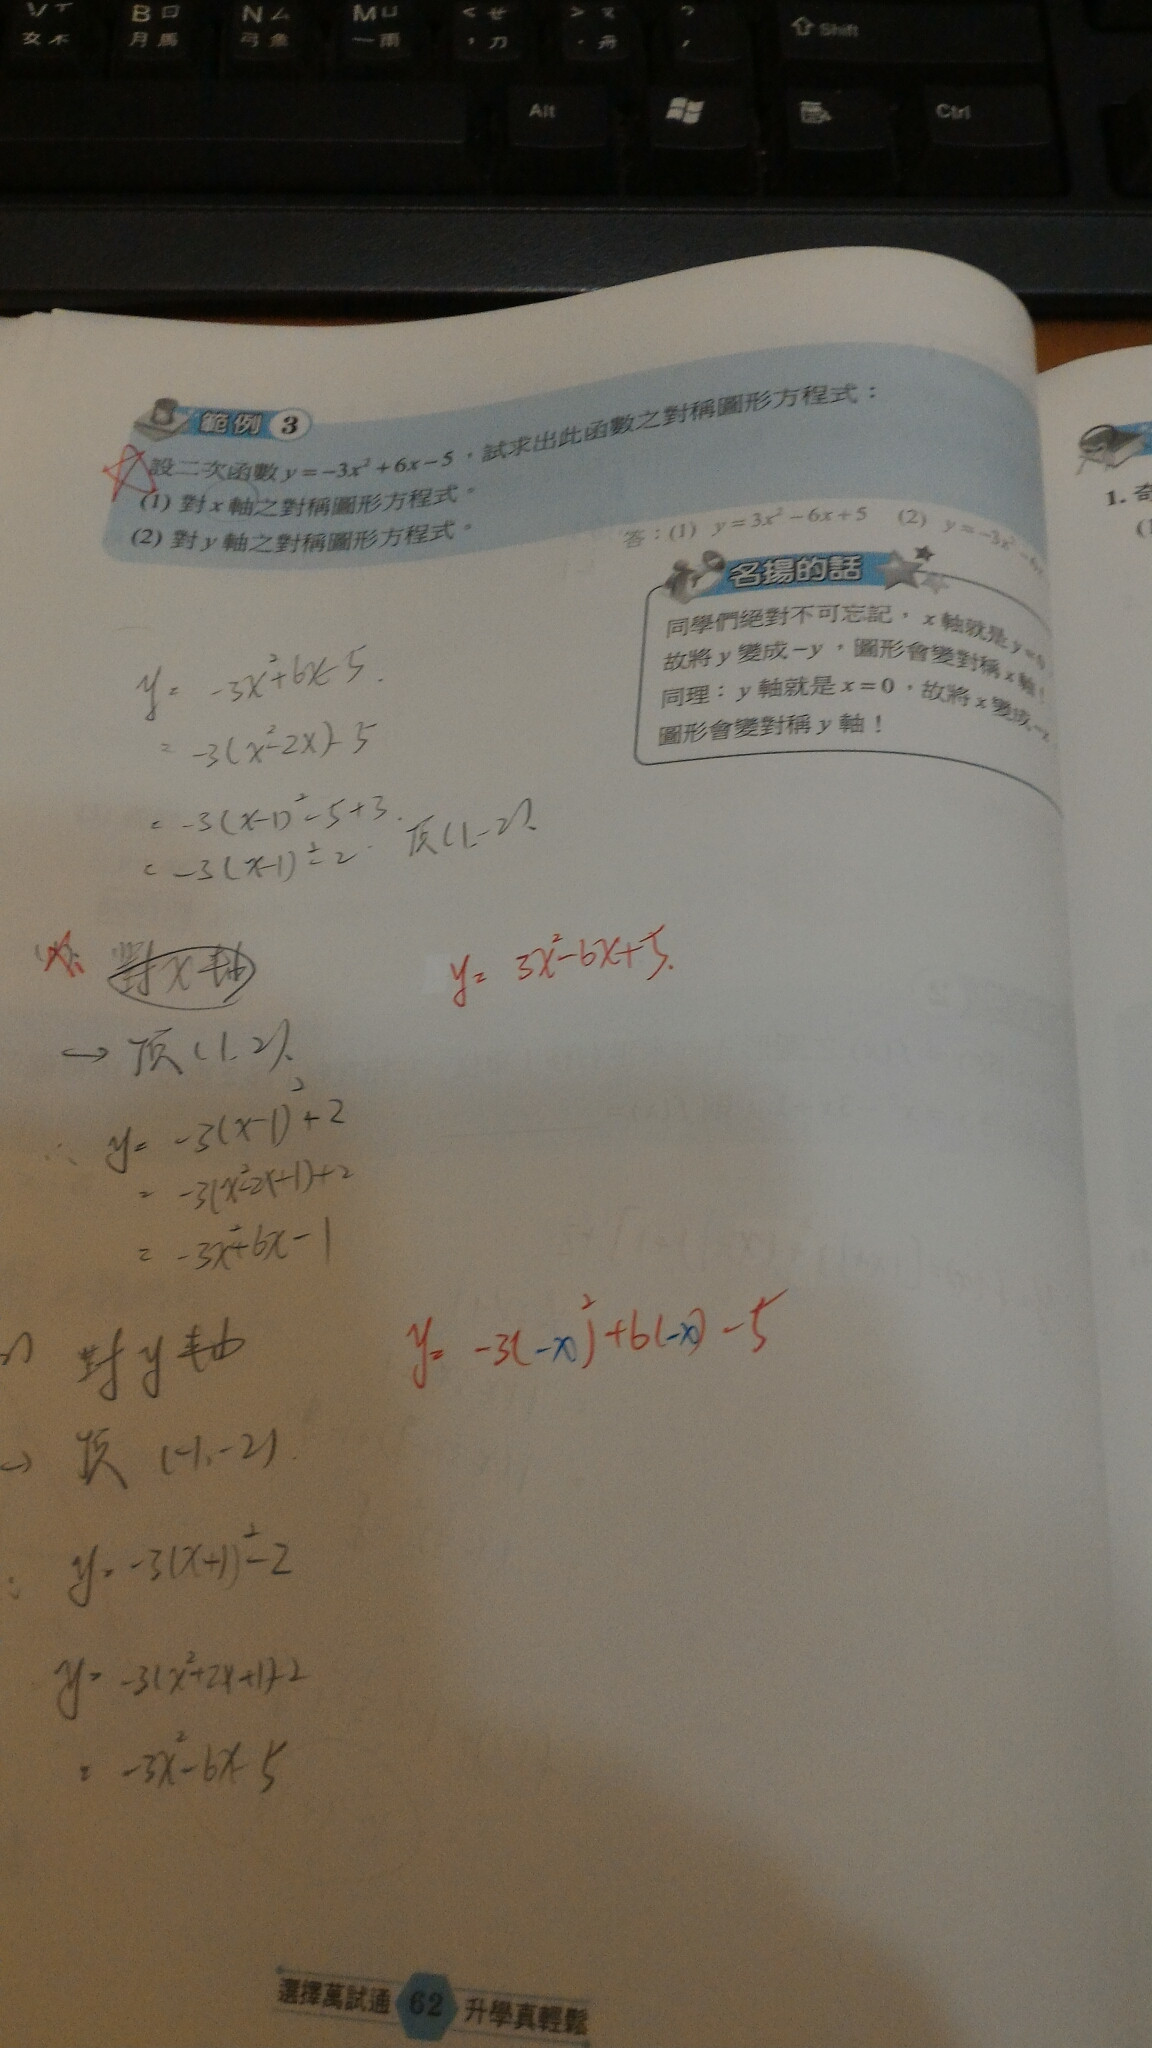 V ㄒ 女 木
B ㄖ 月 馬
N ㄙ 弓 魚
M ㄩ 一 雨
< ㄝ , 力
> ㄡ . 舟
Shift
Alt
Ctrl
範例 3
設二次函數 y = -3x² + 6x - 5 ,試求出此函數之對稱圖形方程式:
(1) 對 x 軸之對稱圖形方程式。
(2) 對 y 軸之對稱圖形方程式。
答:(1) y = 3x² - 6x + 5 (2) y = -3x² - 6x
1. 奇
名揚的話
同學們絕對不可忘記,x 軸就是 y = 0
故將 y 變成 -y ,圖形會變對稱 x 軸!
同理:y 軸就是 x = 0 ,故將 x 變成 -x
圖形會變對稱 y 軸!
y = -3x² + 6x - 5.
= -3(x² - 2x) - 5
= -3(x-1)² - 5 + 3.
= -3(x-1)² - 2. 頂(1,-2).
對 x 軸
y = 3x² - 6x + 5.
→ 頂(1,2).
∴ y = -3(x-1)² + 2
= -3(x² - 2x + 1) + 2
= -3x² + 6x - 1
對 y 軸
y = -3(-x)² + 6(-x) - 5
→ 頂 (-1,-2).
y = -3(x+1)² - 2
y = -3(x² + 2x + 1) - 2
= -3x² - 6x - 5
選擇萬試通 62 升學真輕鬆